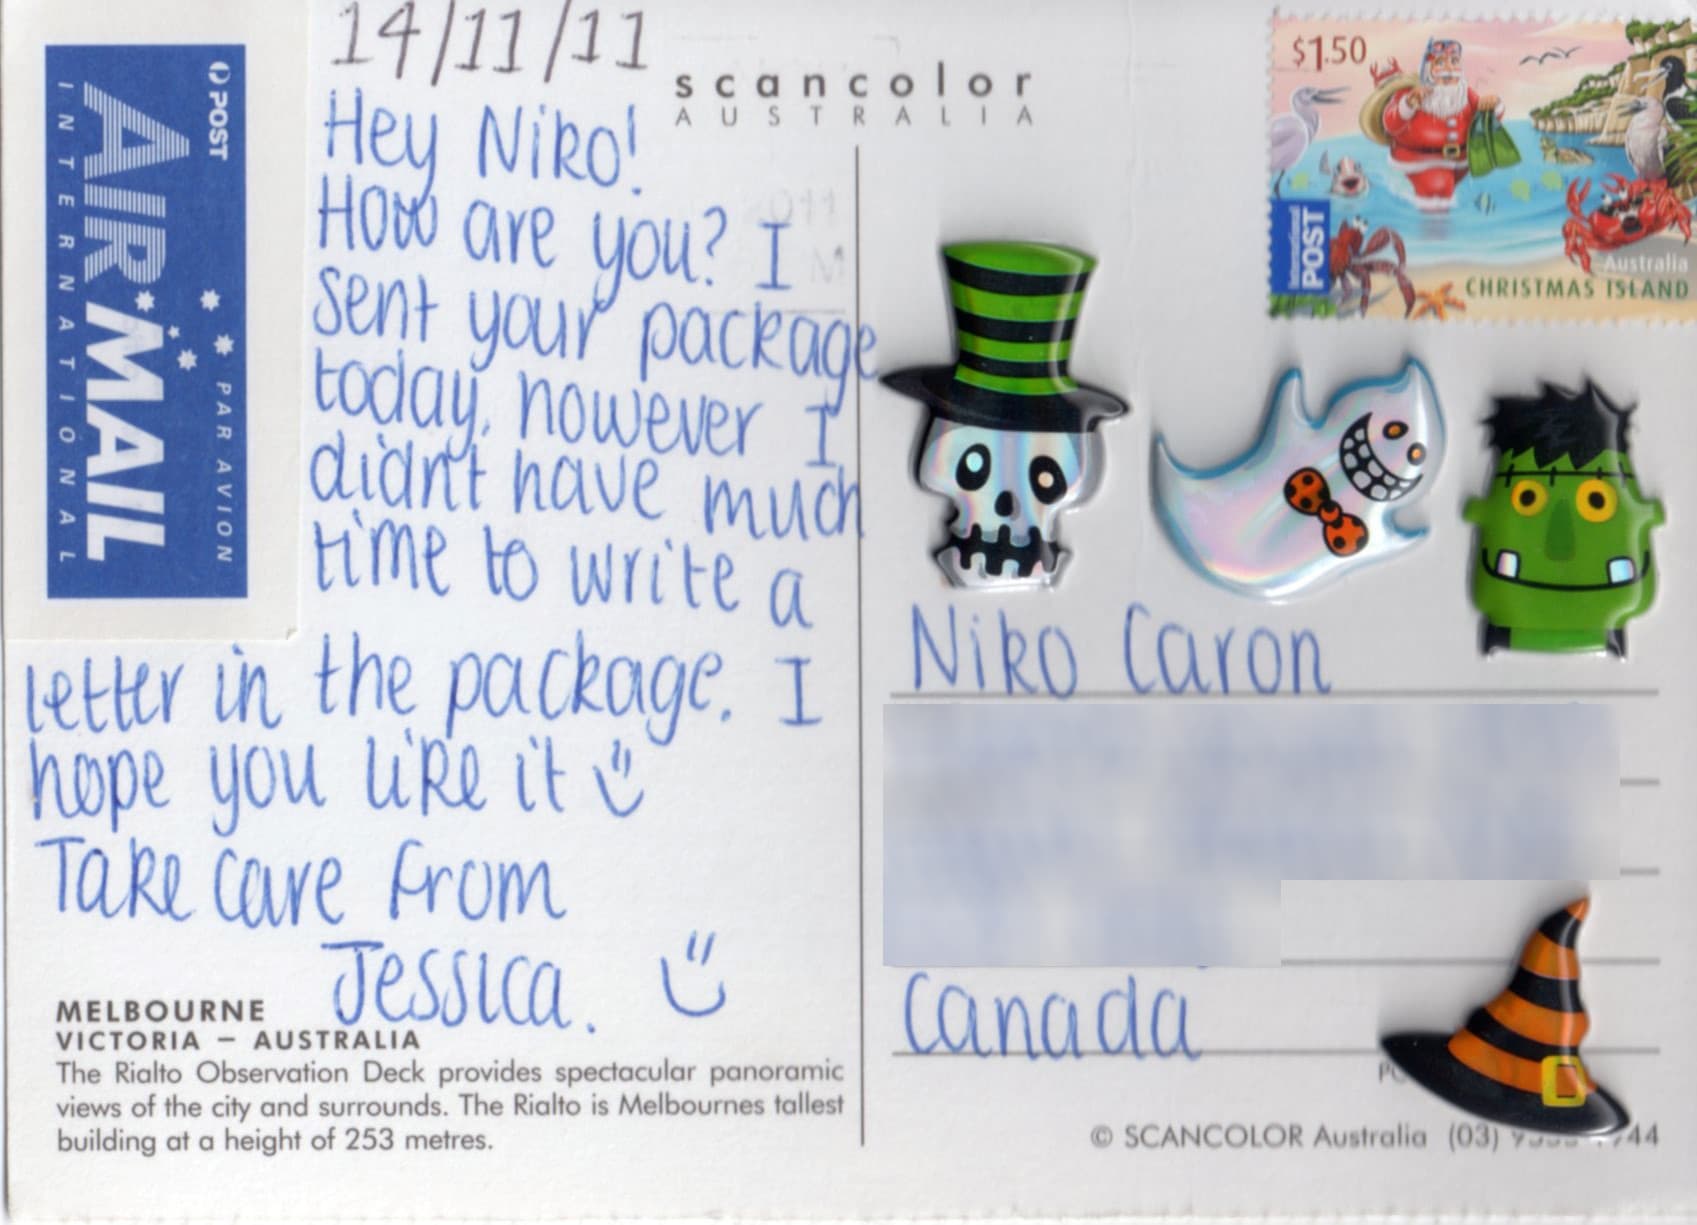 14/11/11
Hey Niko!
How are you? I
sent your package
today, however I
didn't have much
time to write a
letter in the package. I
hope you like it
Take care from
Jessica.
POST
AIR MAIL
PAR AVION
INTERNATIONAL
scancolor
AUSTRALIA
$1.50
International
POST
Australia
CHRISTMAS ISLAND
Niko Caron
Canada
MELBOURNE
VICTORIA – AUSTRALIA
The Rialto Observation Deck provides spectacular panoramic
views of the city and surrounds. The Rialto is Melbournes tallest
building at a height of 253 metres.
© SCANCOLOR Australia (03)